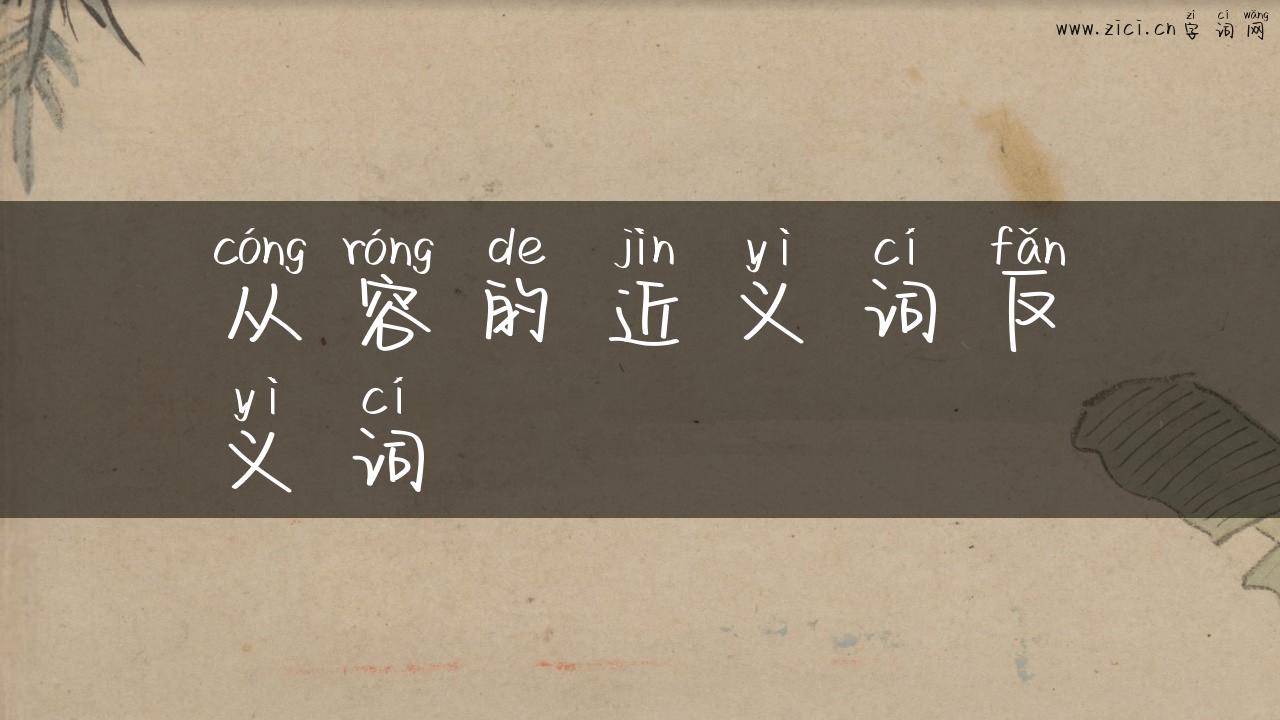 zì cí wǎng
www.zici.cn 字词网
cóng róng de jìn yì cí fǎn
从容的近义词反
yì cí
义词